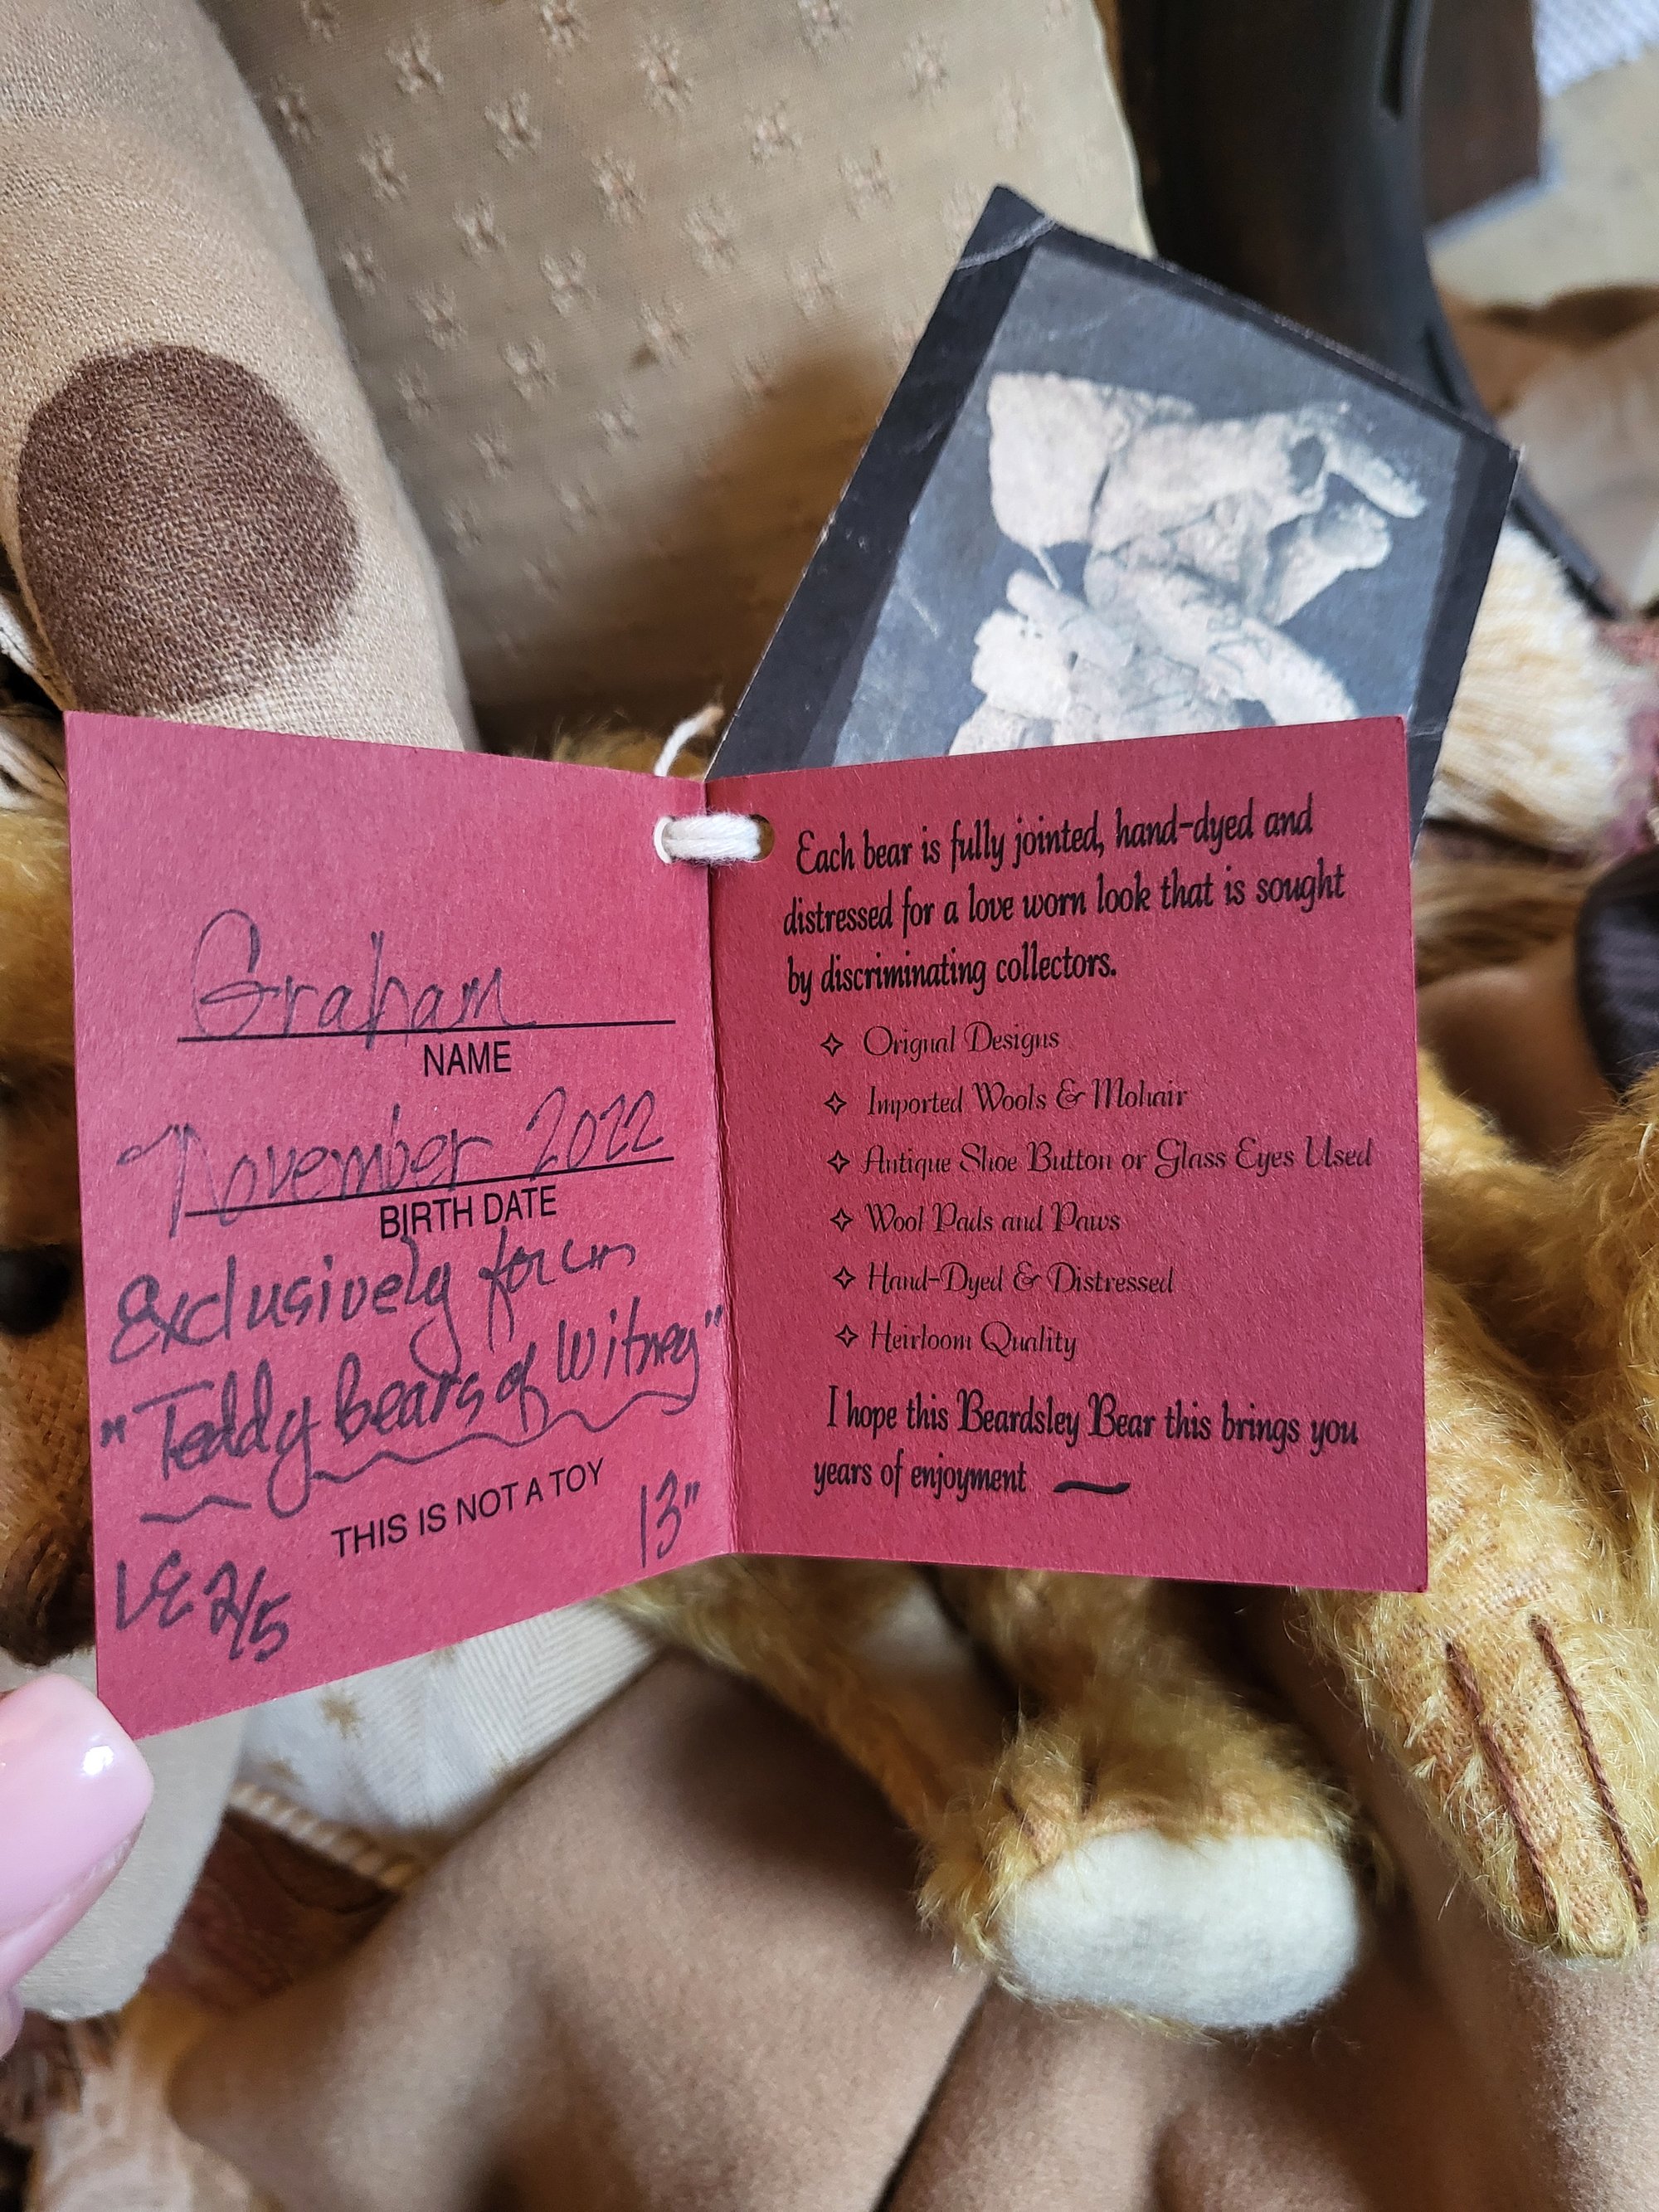 Graham
NAME
November 2022
BIRTH DATE
Exclusively for
"Teddy Bears of Witney"
THIS IS NOT A TOY
13"
LE 2/5
Each bear is fully jointed, hand-dyed and
distressed for a love worn look that is sought
by discriminating collectors.
✧ Orignal Designs
✧ Imported Wools & Mohair
✧ Antique Shoe Button or Glass Eyes Used
✧ Wool Pads and Paws
✧ Hand-Dyed & Distressed
✧ Heirloom Quality
I hope this Beardsley Bear this brings you
years of enjoyment ~